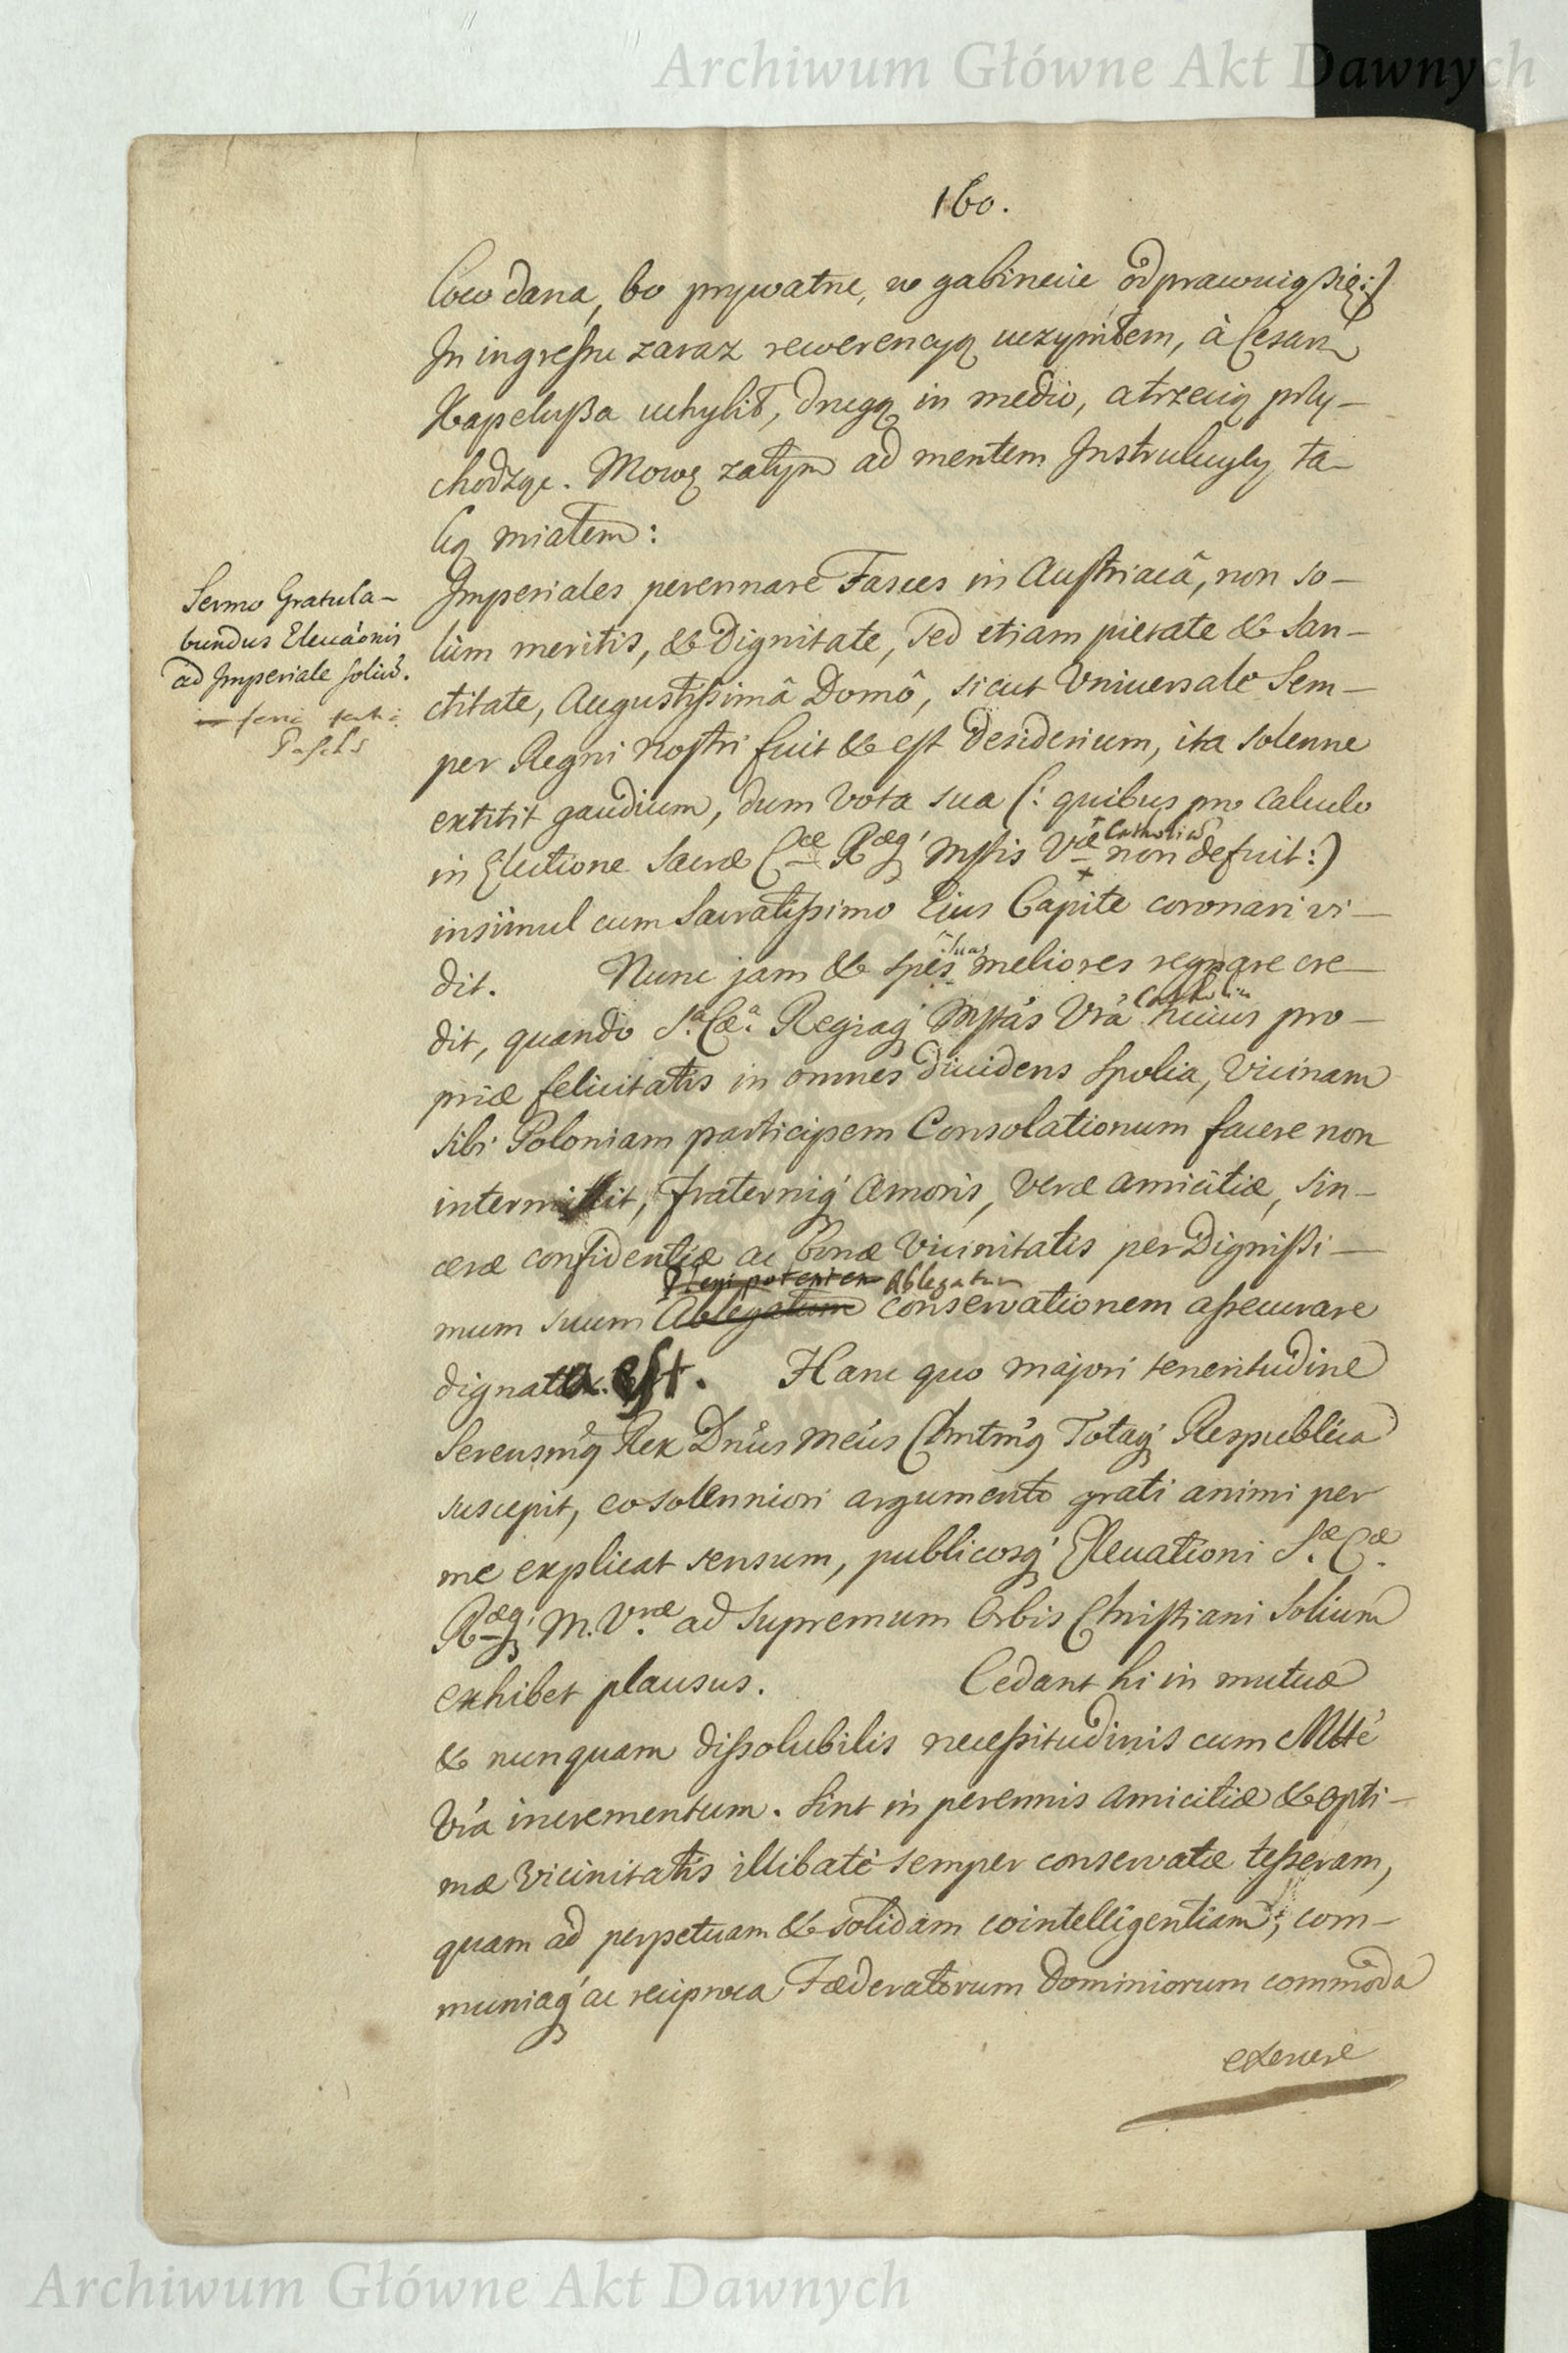 Archiwum Główne Akt Dawnych
160.
kowo dana, bo prywatne, w gabinecie odprawuią się:)
In ingressu zaraz rewerencyą uczyniłem, à Cesarz
Kapelusza uchylił, drugą in medio, a trzecią przy-
chodząc. Mowę zatym ad mentem Instrukcyey ta-
ką miałem:
Sermo Gratula-
bundus Elevaonis
ad Imperiale Soliū.
Imperiales perennare Fasces in Austriacâ, non so-
lùm meritis, & Dignitate, sed etiam pietate & San-
ctitate, Augustissimâ Domô, sicut Vniversale Sem-
per Regni Nostri fuit & est desiderium, ita solenne
extitit gaudium, dum Vota sua (: quibus pro Calculo
Catholicæ
in Electione Sacræ Cææ Ræq' Mstis Vræ non defuit:)
insimul cum Sacratissimo Eius Capite coronari vi-
suas
dit. Nunc jam & spes meliores regnare cre-
Catholica
dit, quando S.a Cæ.a Regiaq' Mstàs Vrà huius pro-
priæ felicitatis in omnes dividens Spolia, Vicinam
sibi Poloniam participem Consolationum facere non
intermittit, fraterniq' Amoris, Veræ amicitiæ, sin-
ceræ confidentiæ ac bonæ Vicinitatis per Dignissi-
Plenipotenten Ablegatum
mum suum Ablegatum conservationem assecurare
dignata est. Hanc quo majori teneritudine
Serensmg Rex Dnus Meus Clmtmg Totaq' Respublica
suscepit, eo solenniori argumento grati animi per
me explicat sensum, publicosq' Elevationi S.æ C.æ
Ræq' M. V.ræ ad Supremum Orbis Christiani Solium
exhibet plausus. Cedant hi in mutuæ
& nunquam dissolubilis necessitudinis cum Mtte
Vrà incrementum. Sint in perennis Amicitiæ & opti-
mæ Vicinitatis illibatè semper conservatæ tesseram,
quam ad perpetuam & solidam cointelligentiam, com-
muniaq' ac reciproca Fæderatorum Dominiorum commoda
exerere
Archiwum Główne Akt Dawnych